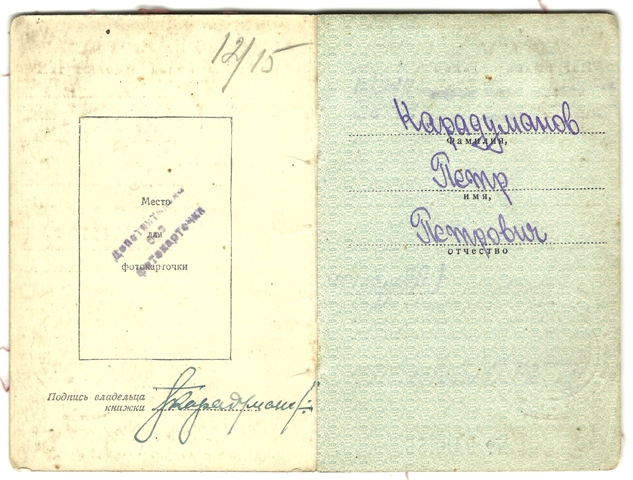 12/15
Место
для
фотокарточки
Действительно
без
фотокарточки
Подпись владельца
книжки
Карадуманов
фамилия,
Петр
имя,
Петрович
отчество